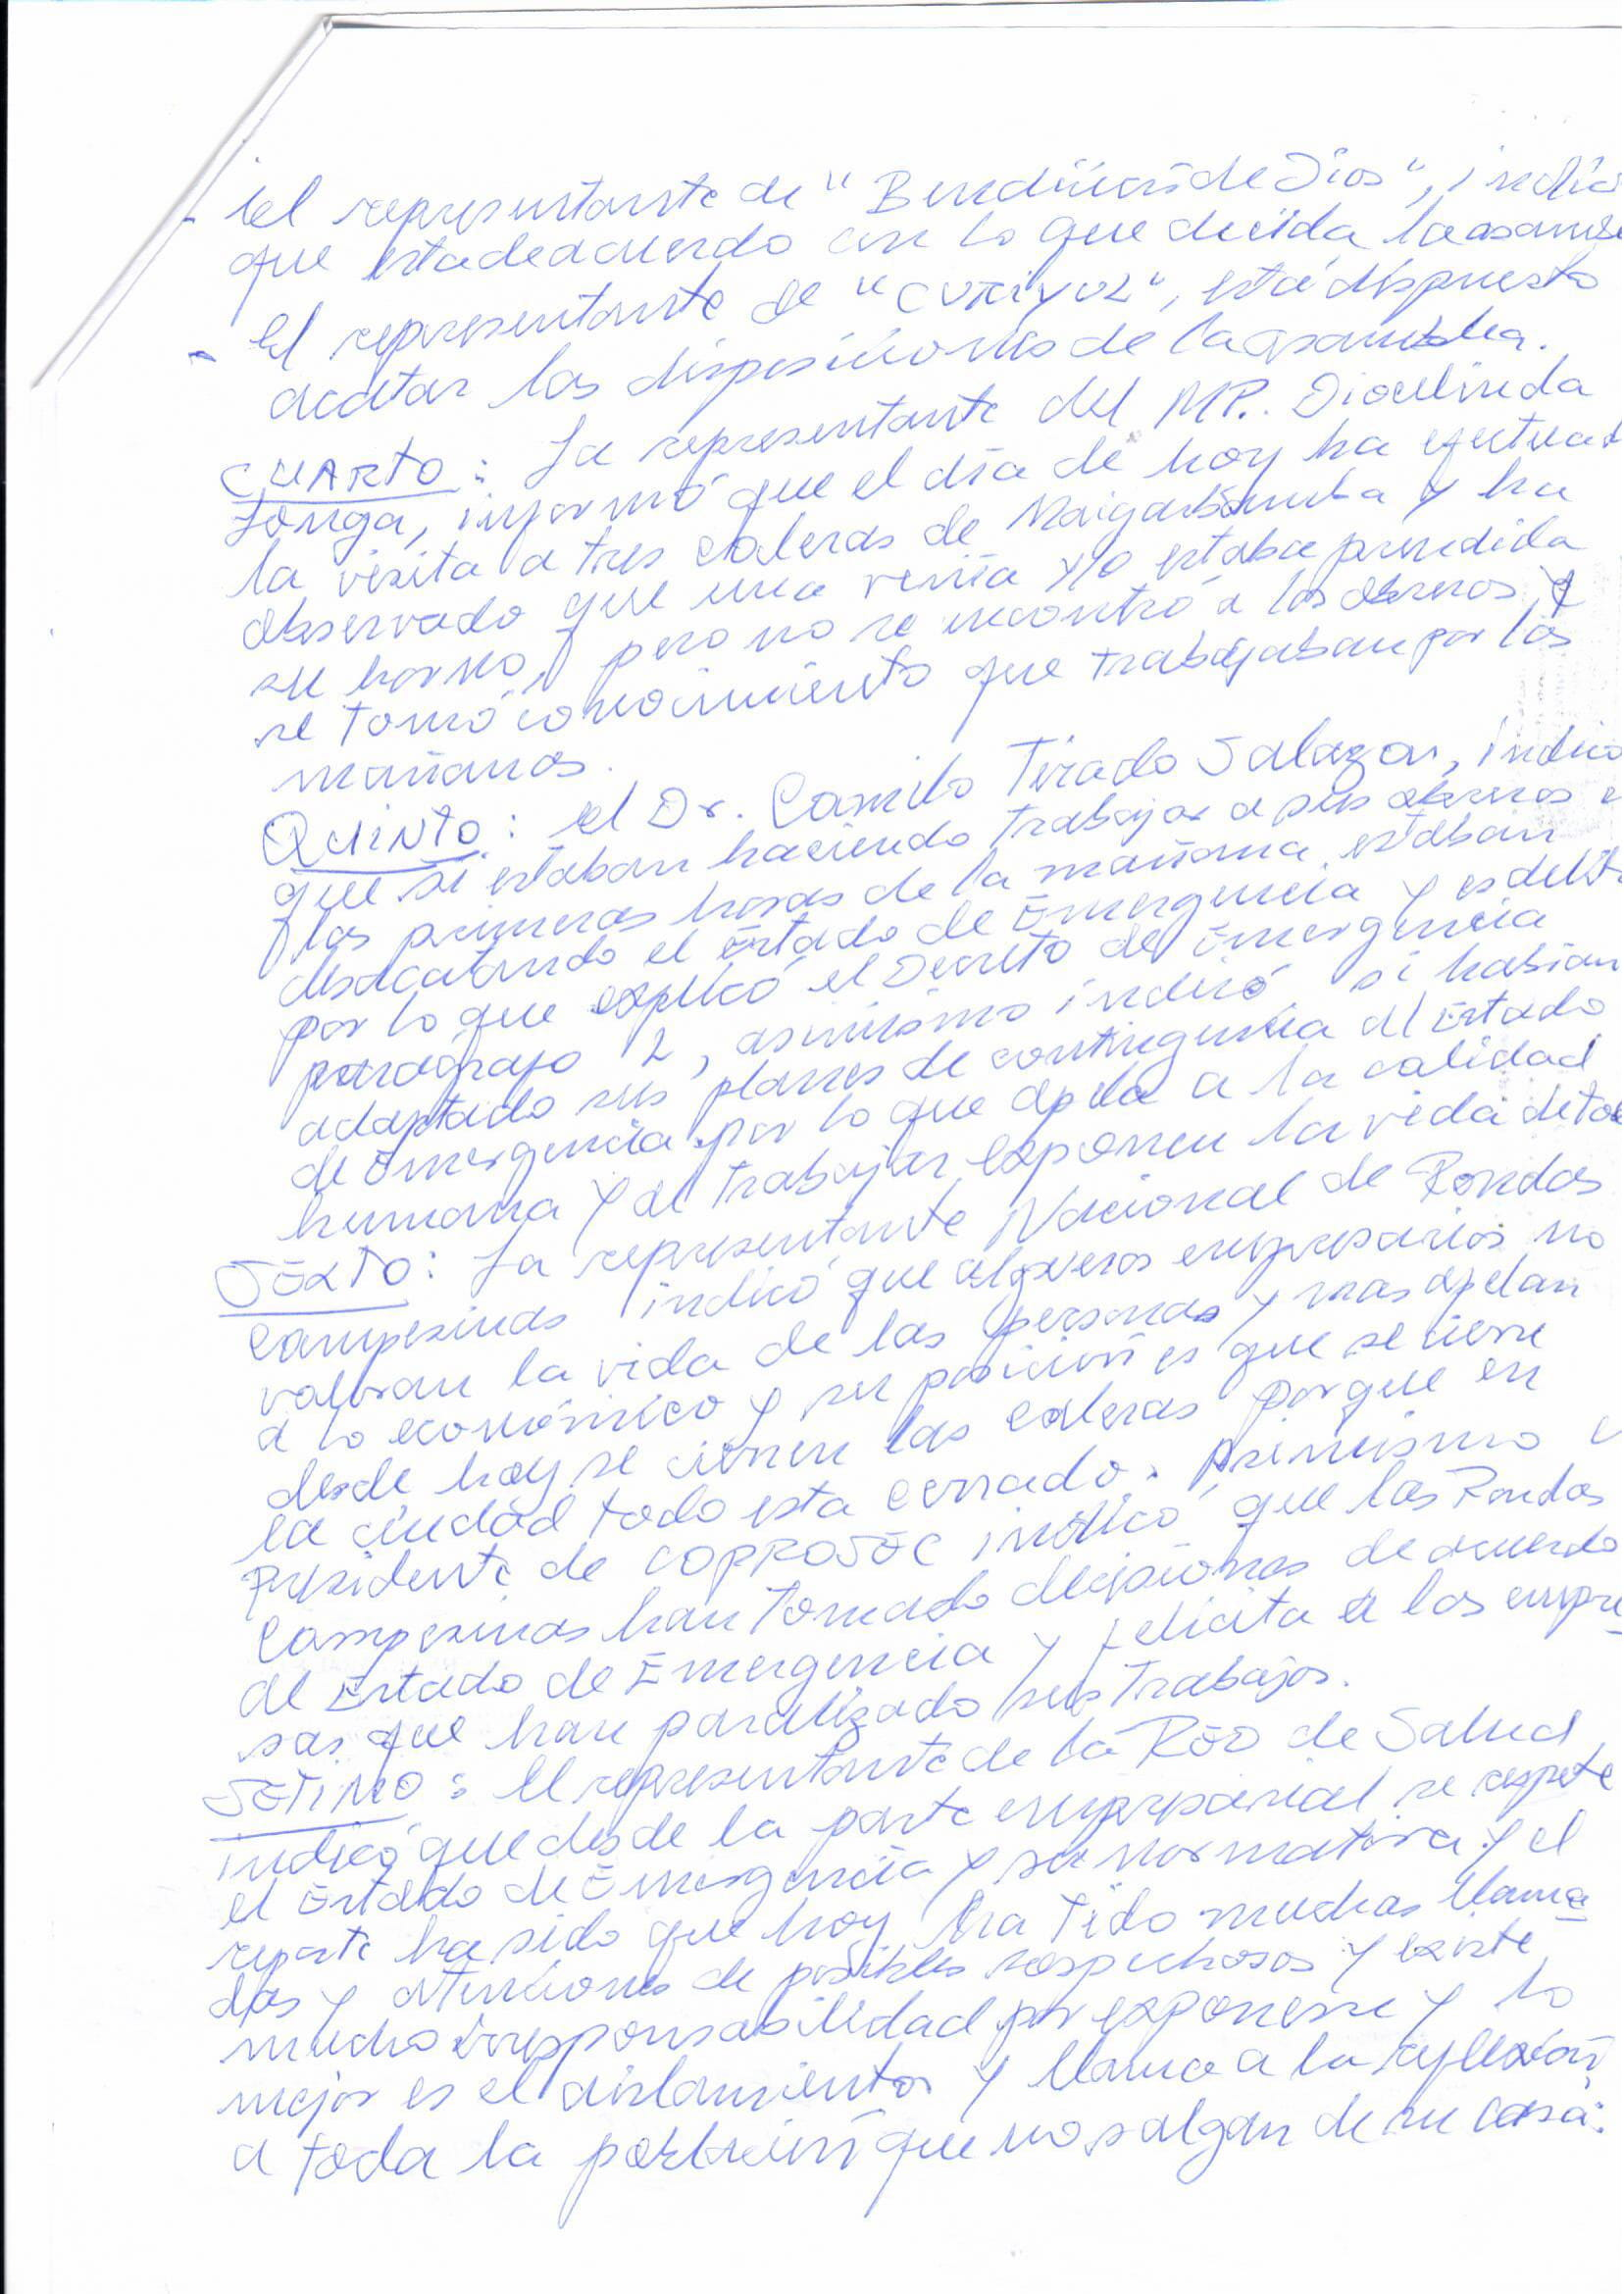 - El representante de "Bendición de Dios", indic
que esta de acuerdo con lo que decida la asamble
- El representante de "CURIYUZ", está dispuesto
acatar las disposiciones de la asamblea.
CUARTO: La representante del MP. Dioselinda
Longa, informó que el día de hoy ha efectuad
la visita a tres caleras de Maigasbamba y ha
observado que una venía y/o estaba prendida
su horno, pero no se encontró a los obreros y
se tomó conocimiento que trabajaban por las
mañanas.
QUINTO: el Dr. Camilo Tirado Salazar, indicó
que si estaban haciendo trabajar a sus obreros e
las primeras horas de la mañana, estaban
desacatando el Estado de Emergencia y es delito
por lo que explicó el Decreto de Emergencia
parágrafo 2, asimismo indicó si habían
adaptado sus planes de contingencia al Estado
de Emergencia por lo que apela a la calidad
humana y al trabajar exponen la vida de tod
SEXTO: La representante Nacional de Rondas
Campesinas indicó que algunos empresarios no
valoran la vida de las personas y mas apelan
a lo económico y su posición es que se cierre
desde hoy se cierren las caleras porque en
la ciudad todo esta cerrado. Asimismo e
Presidente de COPROSEC indicó que las Rondas
Campesinas han tomado decisiones de acuerdo
al Estado de Emergencia y felicita a las empre
sas que han paralizado sus trabajos.
SETIMO: El representante de la RED de Salud
indicó que desde la parte empresarial se respete
el Estado de Emergencia y su normativa y el
reporte ha sido que hoy ha tido muchas llama
das y atenciones de posibles sospechosos y existe
mucha irresponsabilidad por exponerse y lo
mejor es el aislamiento y llama a la reflexión
a toda la población que no salgan de su casa.